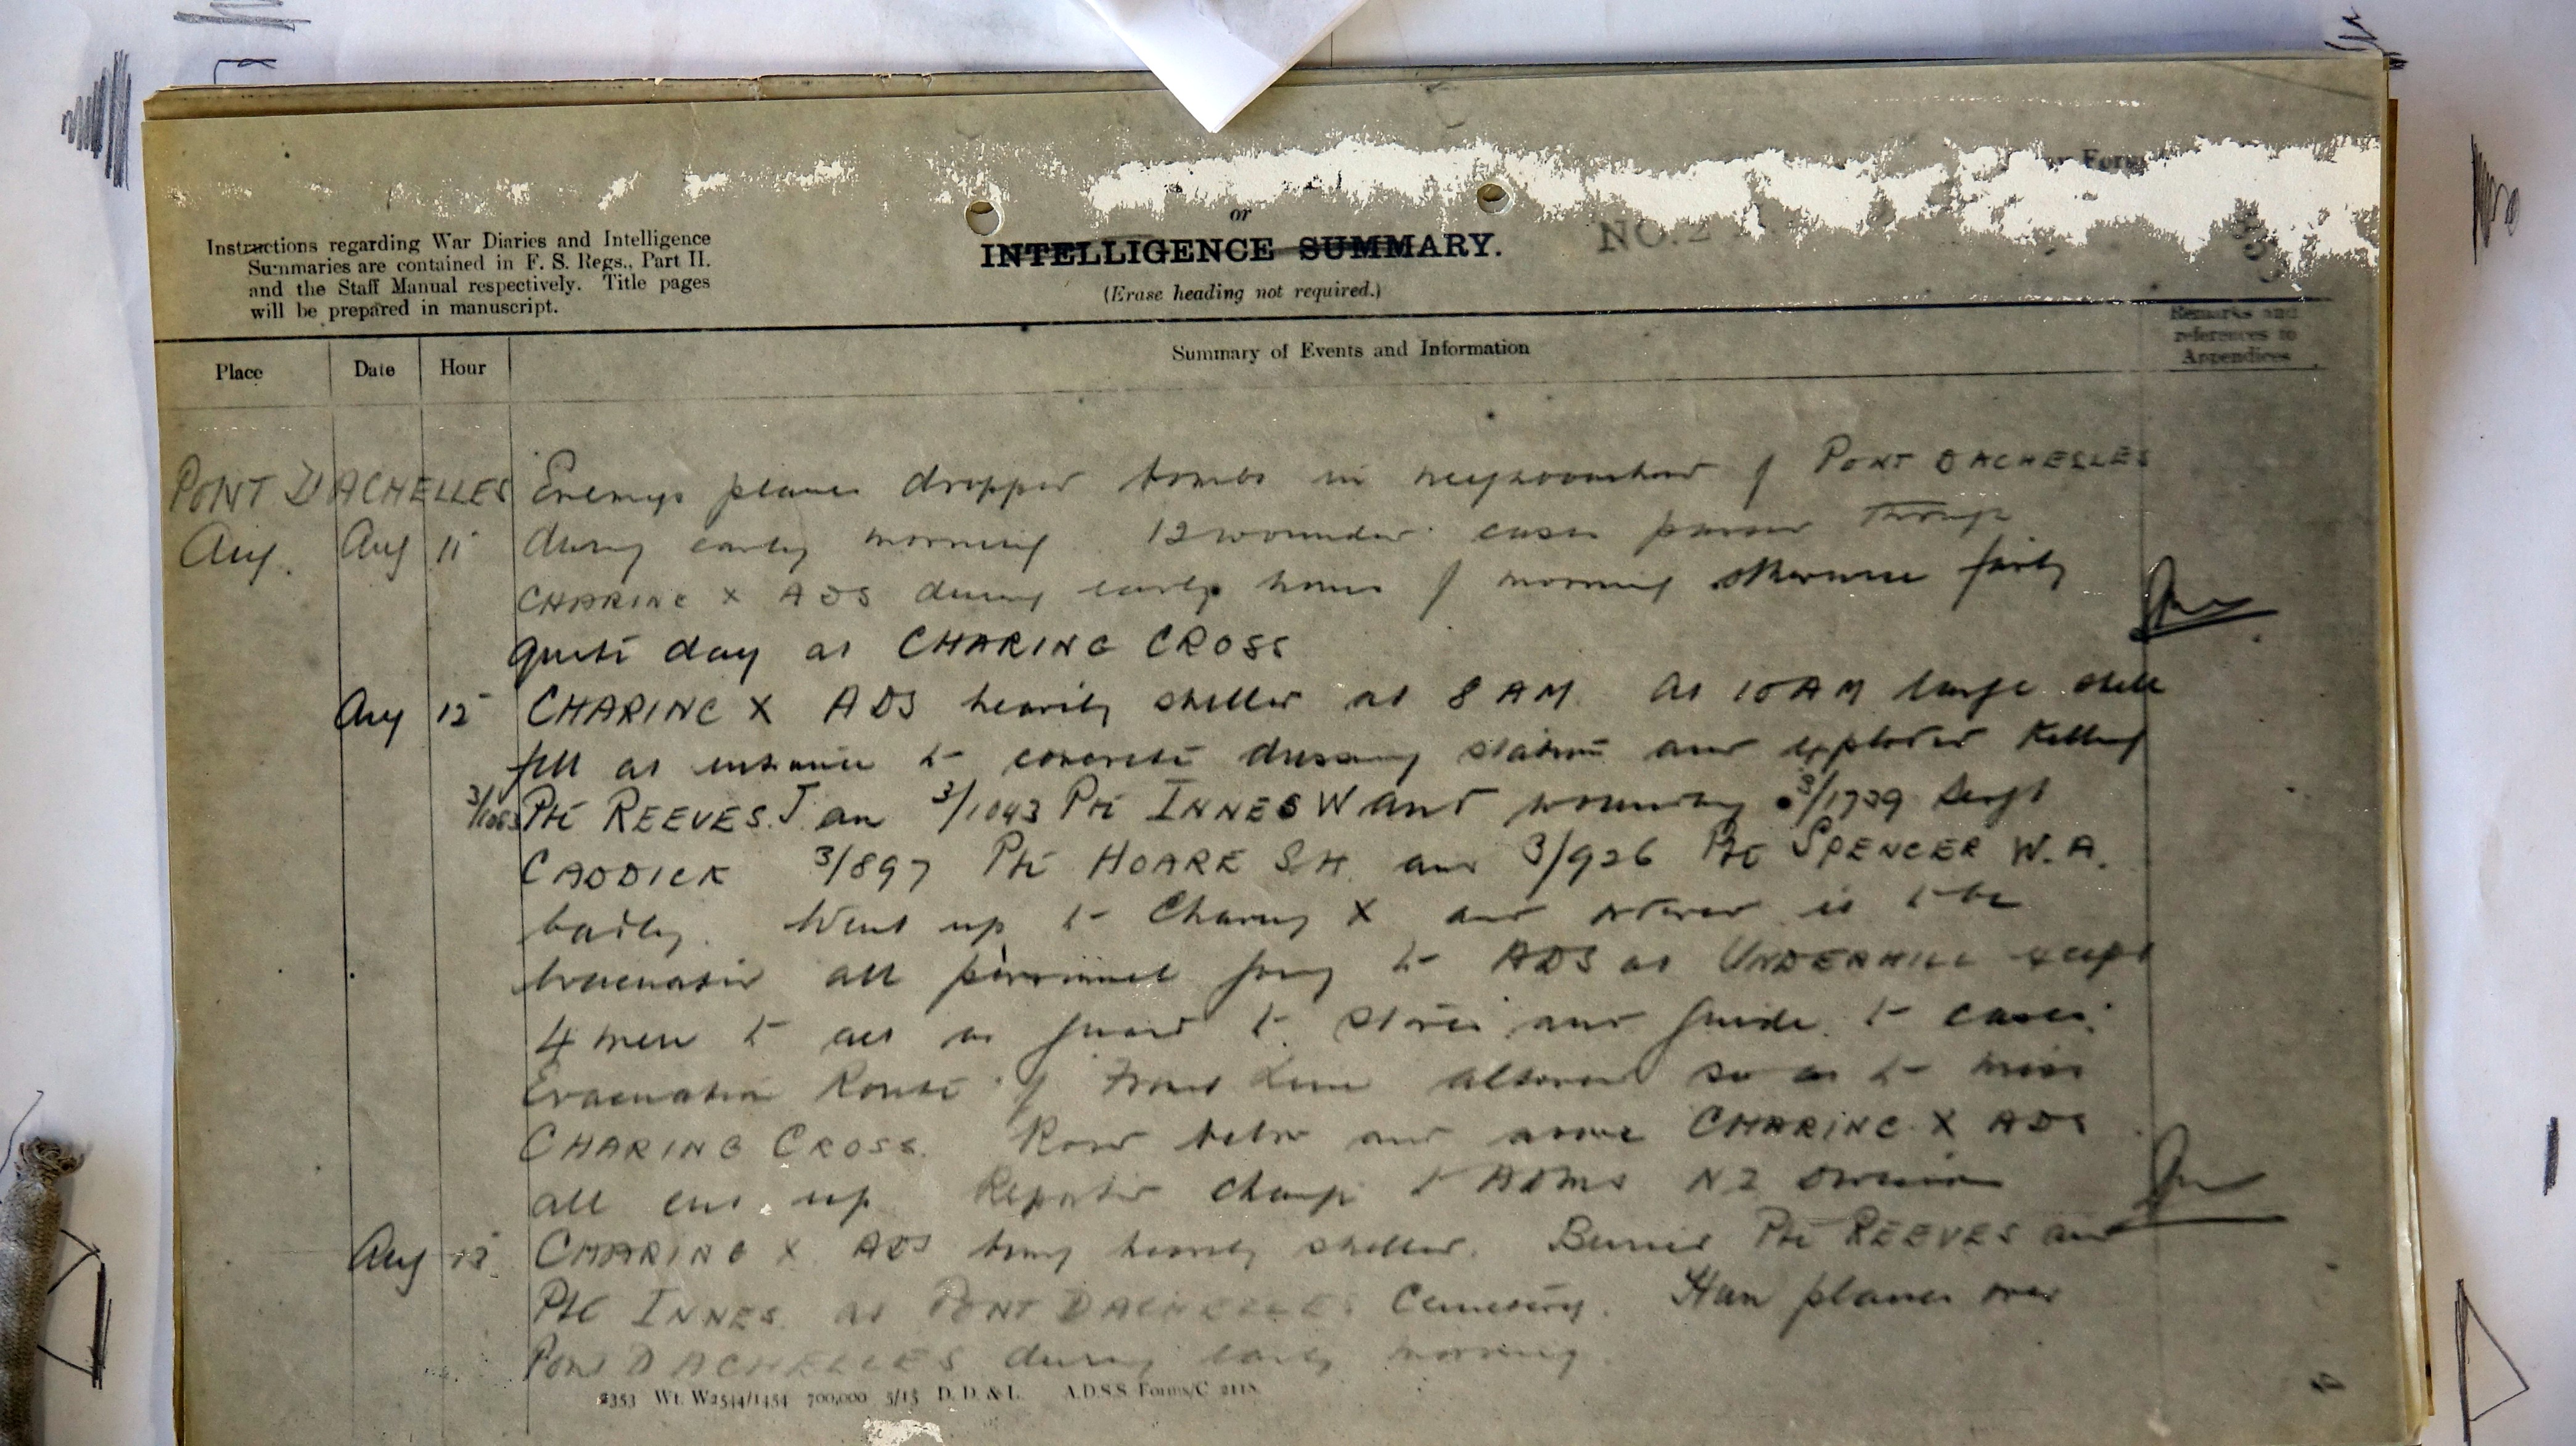 or
INTELLIGENCE SUMMARY.
NO. 2
(Erase heading not required.)
Instructions regarding War Diaries and Intelligence
Summaries are contained in F. S. Regs., Part II.
and the Staff Manual respectively. Title pages
will be prepared in manuscript.
Place Date Hour Summary of Events and Information
Remarks and
references to
Appendices
PONT DACHELLES Enemys planes dropped bombs in neighbourhood of PONT DACHELLES
Aug. Aug 11 during early morning. 12 wounded cases passed through
CHARING X ADS during early hours of morning otherwise fairly
quite day at CHARING CROSS
Aug 12 CHARING X ADS heavily shelled at 8 AM. At 10 AM large shell
fell at entrance to concrete dressing station and exploded killing
Pte REEVES. J. an 3/1043 Pte INNES W and wounding 3/1739 Sergt
CADDICK 3/897 Pte HOARE S.H. and 3/926 Pte SPENCER W.A.
badly. Went up to Charing X and ordered it to be
evacuated all personnel going to ADS at UNDERHILL except
4 men to act as guard to stores and guide to cases.
Evacuation Route of Front Line altered so as to miss
CHARING CROSS. Road below and above CHARING X ADS
all cut up. Reported change to ADMS NZ Division
Aug 13 CHARING X ADS being heavily shelled. Buried Pte REEVES and
Pte INNES. at PONT DACHELLES Cemetery. Hun planes over
Pont DACHELLES during early morning.
2353 Wt. W2544/1454 700,000 5/15 D. D. & L. A.D.S.S. Forms/C 2118.